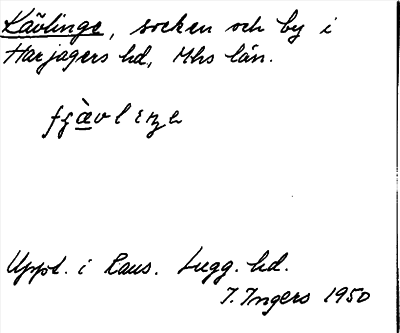 Kävlinge, socken och by i
Harjagers hd, Mhs län.
Uppt. i Raus. Lugg. hd.
I. Ingers 1950